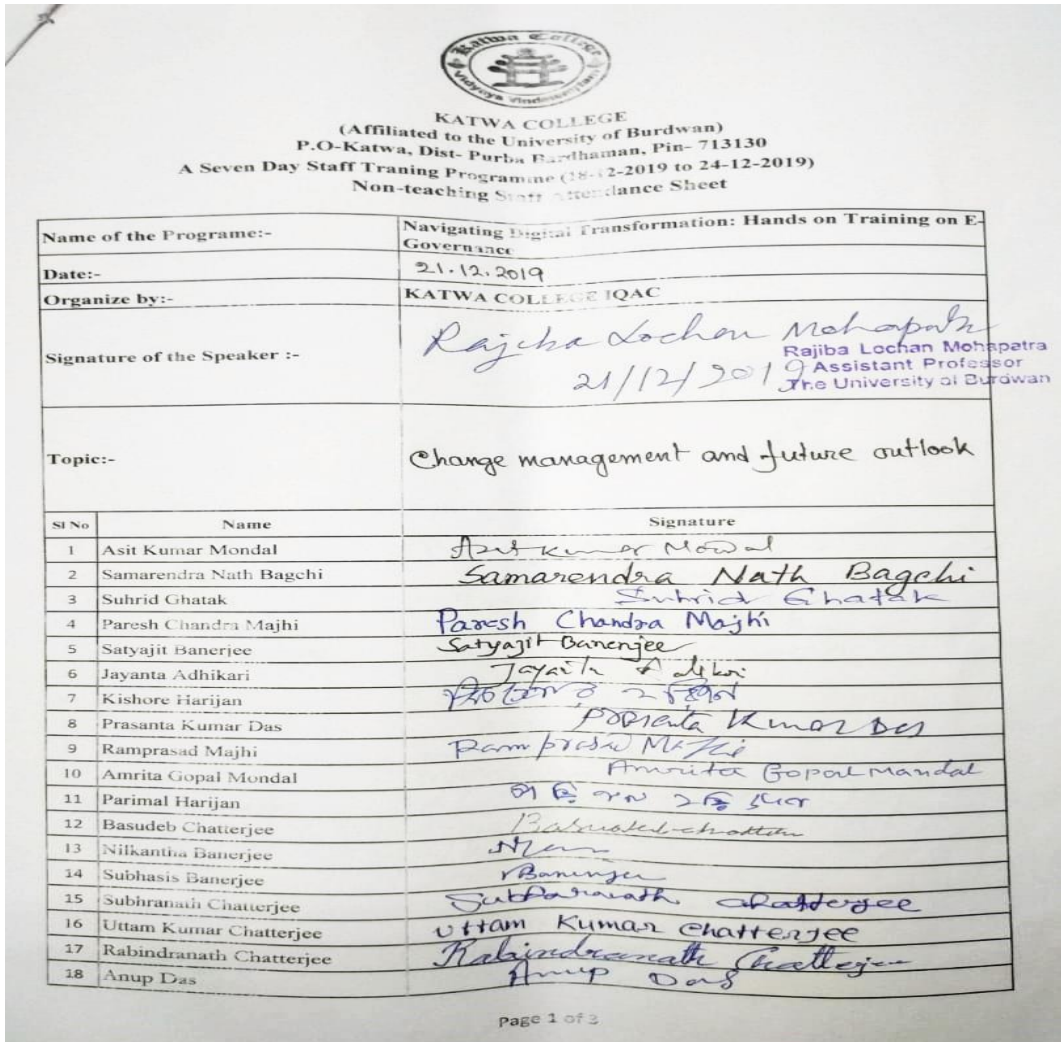 Katwa College
KATWA COLLEGE
(Affiliated to the University of Burdwan)
P.O-Katwa, Dist- Purba Bardhaman, Pin- 713130
A Seven Day Staff Traning Programme (18-12-2019 to 24-12-2019)
Non-teaching Staff Attendance Sheet
Name of the Programe:- Navigating Digital Transformation: Hands on Training on E-
Governance
Date:- 21.12.2019
Organize by:- KATWA COLLEGE IQAC
Signature of the Speaker :- Rajiba Lochan Mohapatra
Rajiba Lochan Mohapatra
21/12/2019 Assistant Professor
The University of Burdwan
Topic:- Change management and future outlook
Sl No Name Signature
1 Asit Kumar Mondal Asit Kumar Mondal
2 Samarendra Nath Bagchi Samarendra Nath Bagchi
3 Suhrid Ghatak Suhrid Ghatak
4 Paresh Chandra Majhi Paresh Chandra Majhi
5 Satyajit Banerjee Satyajit Banerjee
6 Jayanta Adhikari Jayanta
7 Kishore Harijan
8 Prasanta Kumar Das Prasanta Kumar Das
9 Ramprasad Majhi Ramprasad Majhi
10 Amrita Gopal Mondal Amrita Gopal Mandal
11 Parimal Harijan
12 Basudeb Chatterjee
13 Nilkantha Banerjee
14 Subhasis Banerjee Banerjee
15 Subhranath Chatterjee Subhranath Chatterjee
16 Uttam Kumar Chatterjee Uttam Kumar Chatterjee
17 Rabindranath Chatterjee Rabindranath Chatterjee
18 Anup Das Anup Das
Page 1 of 3